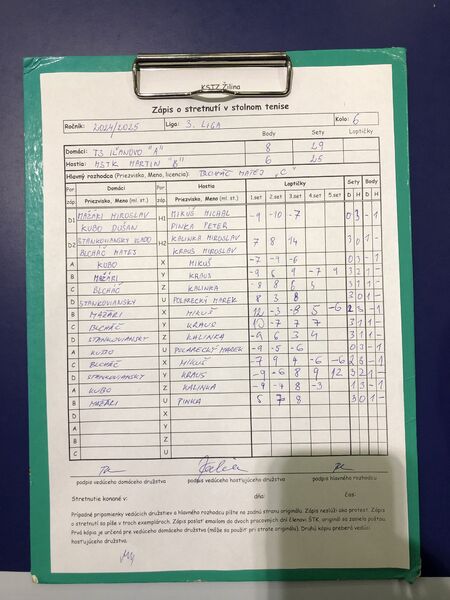 KSTZ Žilina
Zápis o stretnutí v stolnom tenise
Ročník: 2024/2025 Liga: 3. LIGA Kolo: 6
Body Sety Loptičky
Domáci: TJ IĽANOVO "A" 8 29
Hostia: MSTK MARTIN "B" 6 25
Hlavný rozhodca (Priezvisko, Meno, licencia): BLCHÁČ MATEJ "C"
Por Domáci Por Hostia Loptičky Sety Body
záp. Priezvisko, Meno (ml. st.) záp. Priezvisko, Meno (ml. st.) 1.set 2.set 3.set 4.set 5.set D H D H
D1 MAŽÁRI MIROSLAV H1 MIKUŠ MICHAL -9 -10 -7 0 3 - 1
KUBO DUŠAN PINKA PETER
D2 STANKOVIANSKY VLADO H2 KALINKA MIROSLAV 7 8 14 3 0 1 -
BLCHÁČ MATEJ KRAUS MIROSLAV
A KUBO X MIKUŠ -7 -9 -6 0 3 - 1
B MAŽÁRI Y KRAUS -9 6 9 -7 9 3 2 1 -
C BLCHÁČ Z KALINKA -8 8 6 3 3 1 1 -
D STANKOVIANSKY U POLARECKÝ MAREK 8 3 8 3 0 1 -
B MAŽÁRI X MIKUŠ 12 -3 -8 5 -6 2 3 - 1
C BLCHÁČ Y KRAUS 10 -7 7 7 3 1 1 -
D STANKOVIANSKY Z KALINKA -9 6 3 4 3 1 1 -
A KUBO U POLARECKÝ MAREK -9 -5 -6 0 3 - 1
C BLCHÁČ X MIKUŠ -7 9 4 -6 -6 2 3 - 1
D STANKOVIANSKY Y KRAUS -9 -6 8 9 12 3 2 1 -
A KUBO Z KALINKA -9 -7 8 -3 1 3 - 1
B MAŽÁRI U PINKA 5 7 8 3 0 1 -
D X
A Y
B Z
C U
podpis vedúceho domáceho družstva podpis vedúceho hosťujúceho družstva podpis hlavného rozhodcu
Stretnutie konané v: dňa: čas:
Prípadné pripomienky vedúcich družstiev a hlavného rozhodcu píšte na zadnú stranu originálu. Zápis neslúži ako protest. Zápis
o stretnutí sa píše v troch exemplároch. Zápis poslať emailom do dvoch pracovných dní členovi ŠTK, originál sa zasiela poštou.
Prvá kópia je určená pre vedúceho domáceho družstva (môže sa použiť pri strate originálu). Druhú kópiu preberá vedúci
hosťujúceho družstva.